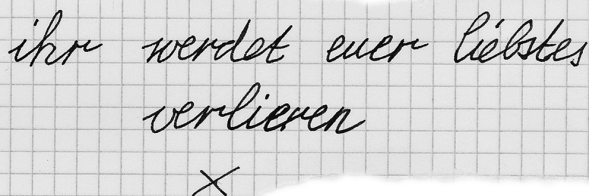 ihr werdet euer liebstes
verlieren
x